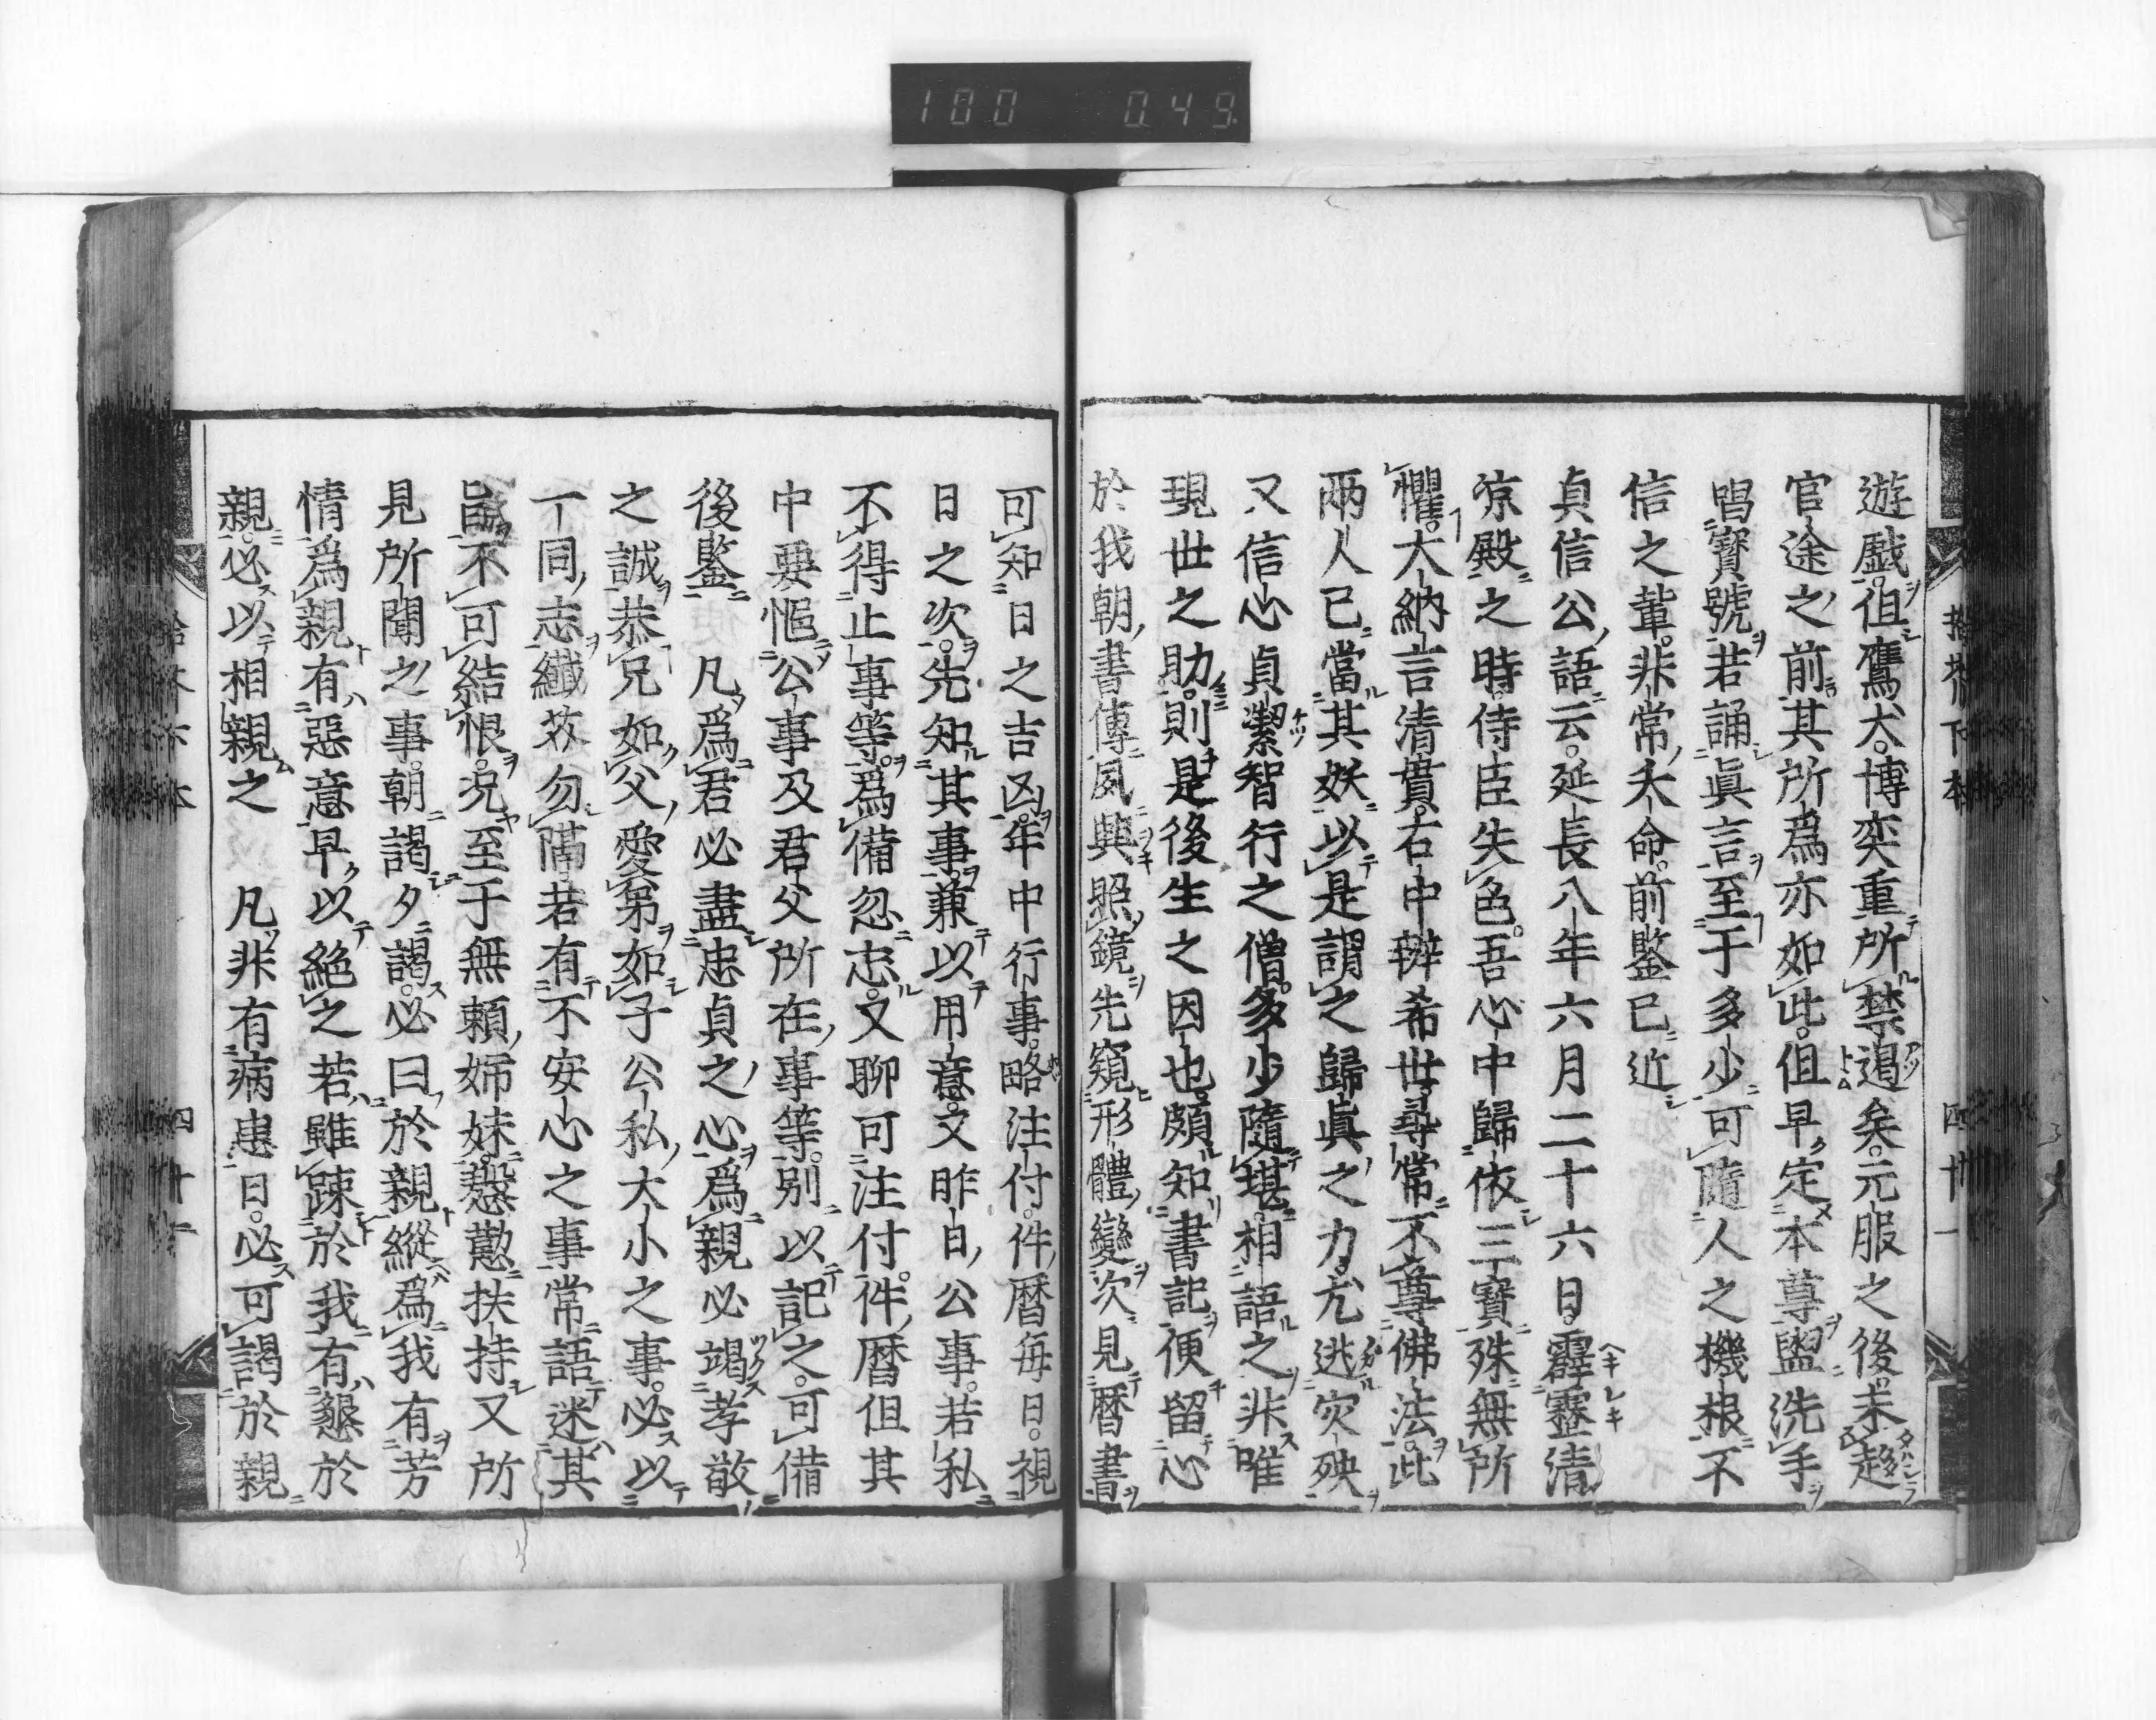 遊戲但鷹犬博奕重所禁遏矣元服之後未趍
官途之前其所爲亦如此但早定本尊盥洗手
唱寶號若誦眞言至于多少可隨人之機根不
信之輩非常夭命前鑒已近
貞信公語云延長八年六月二十六日霹靂清
凉殿之時侍臣失色吾心中歸依三寶殊無所
懼大納言清貫右中辨希世尋常不尊佛法此
兩人已當其妖以是謂之歸眞之力尤逃灾殃
又信心貞潔智行之僧多少隨堪相語之非唯
現世之助則是後生之因也頗知書記便留心
於我朝書傳夙興照鏡先窺形體變次見曆書
可知日之吉凶年中行事略注付件曆毎日視
日之次先知其事兼以用意又昨日公事若私
不得止事等爲備忽忘又聊可注付件曆但其
中要樞公事及君父所在事等別以記之可備
後鑒 凡爲君必盡忠貞之心爲親必竭孝敬
之誠恭兄如父愛弟如子公私大小之事必以
一同志纖芥勿隔若有不安心之事常語述其
旨不可結恨況至于無頼姉妹慇懃扶持又所
見所聞之事朝謁夕謁必曰於親縱爲我有芳
情爲親有惡意早以絶之若雖踈於我有懇於
親必以相親之 凡非有病患日必可謁於親
拾芥下本 四十一
拾芥六本 四十二
180 0.49.